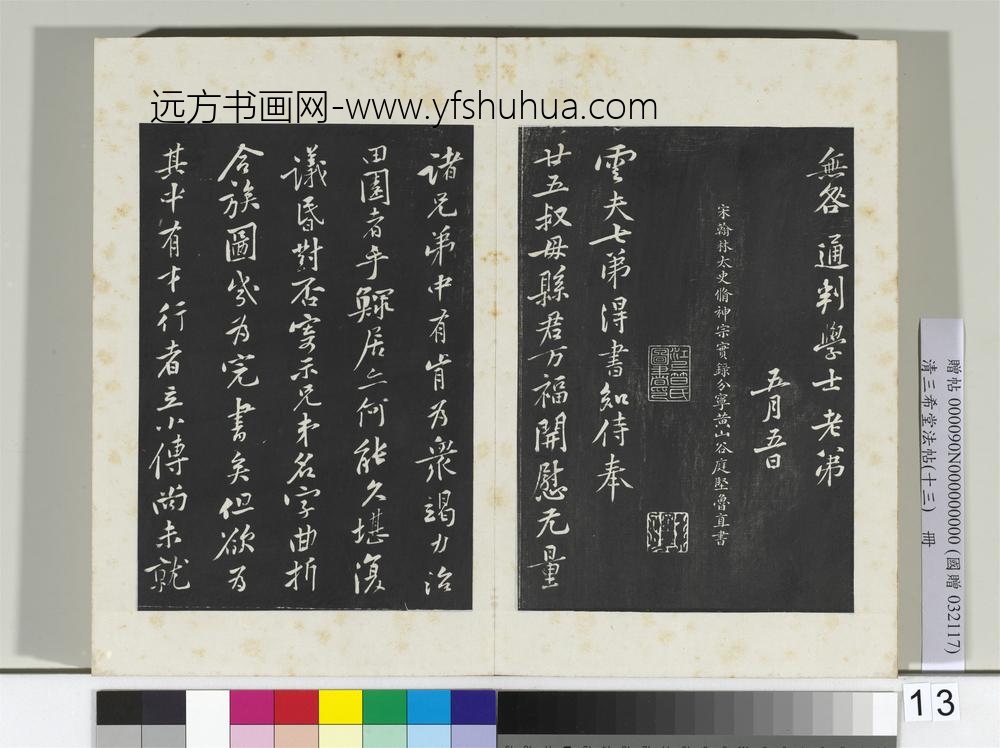 远方书画网-www.yfshuhua.com
無咎通判學士老弟
五月五日
宋翰林太史脩神宗實録分寧黃山谷庭堅魯直書
江上笪氏圖書印
雲夫七弟得書知侍奉
廿五叔母縣君万福開慰无量
諸兄弟中有肯为衆竭力治
田園者乎鰥居亦何能久堪復
議昏對否寄示兄弟名字曲折
合族圖幾为完書矣但欲为
其中有才行者立小傳尚未就
贈帖 000090N000000000 (國贈 032117)
清三希堂法帖(十三) 冊
13